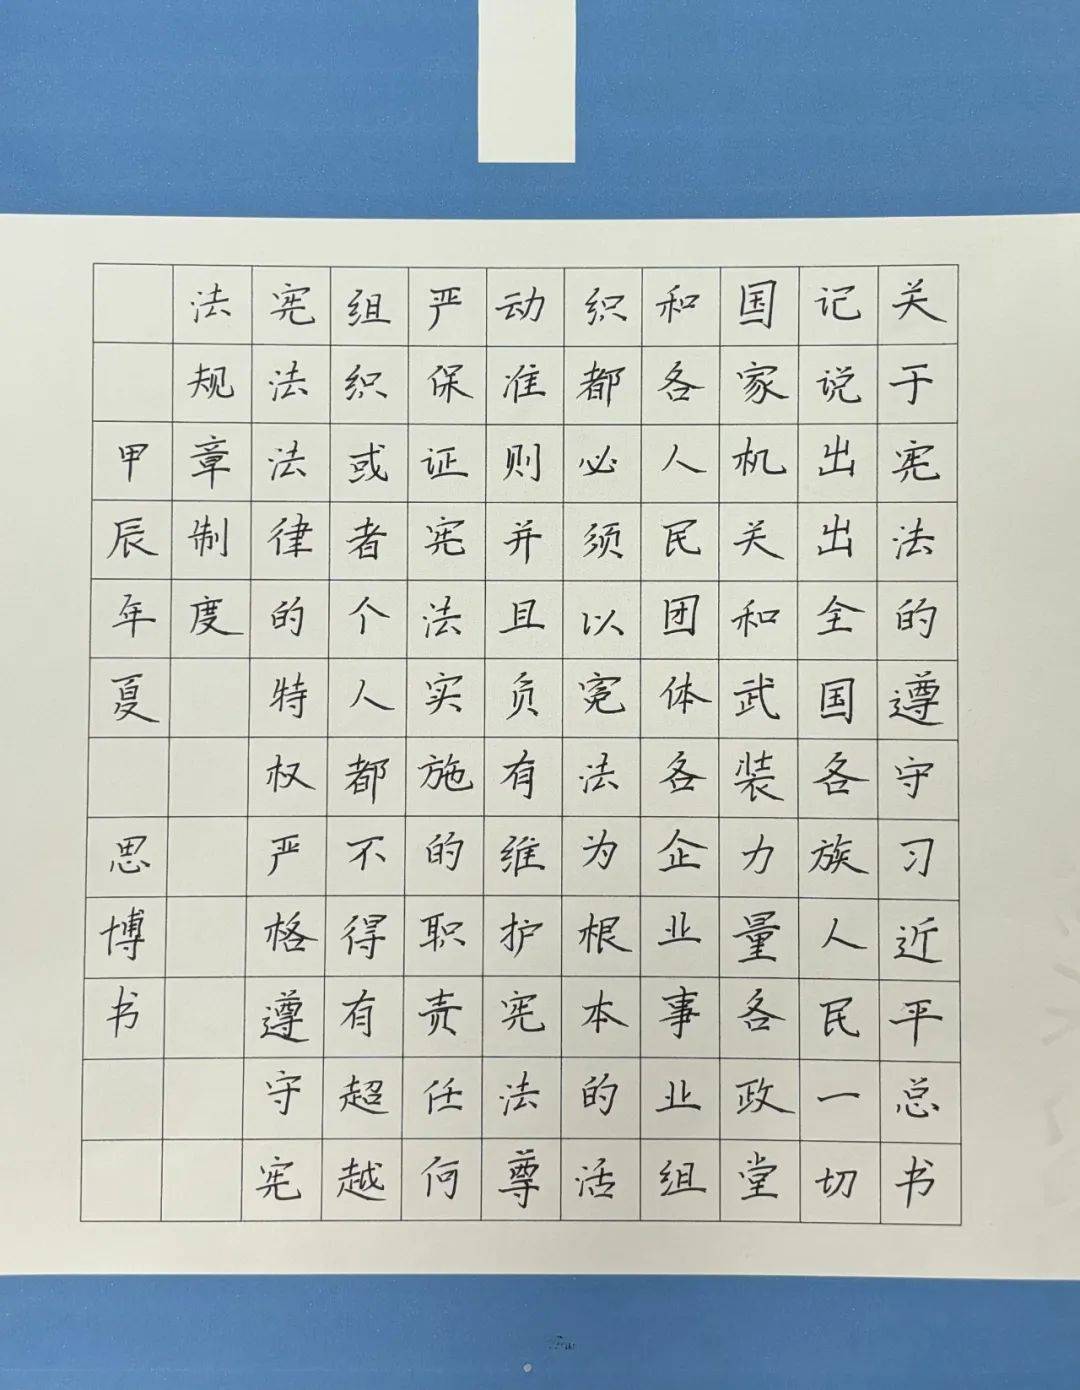 关于宪法的遵守习近平总书
记说出出全国各族人民一切
国家机关和武装力量各政堂
和各人民团体各企业事业组
织都必须以宪法为根本的活
动准则并且负有维护宪法尊
严保证宪法实施的职责任何
组织或者个人都不得有超越
宪法法律的特权严格遵守宪
法规章制度
甲辰年夏 思博书